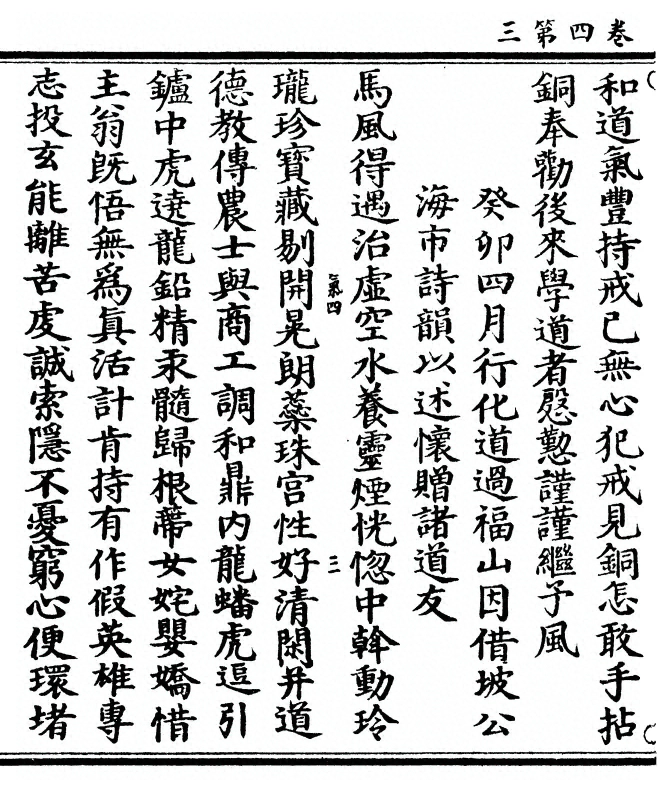 三第四卷
和道氣豐持戒已無心犯戒見銅怎敢手拈
銅奉勸後來學道者慇懃謹謹繼予風
癸卯四月行化道過福山因借坡公
海市詩韻以述懷贈諸道友
馬風得遇治虛空水養靈煙恍惚中斡動玲
瓏珍寶藏剔開晃朗蘂珠宮性好清閑幷道
德教傳農士與商工調和鼎內龍蟠虎逗引
鑪中虎遶龍鉛精汞髓歸根蔕女姹嬰嬌惜
主翁旣悟無爲眞活計肯持有作假英雄專
志投玄能離苦虔誠索隱不憂窮心便環堵
氣四
三